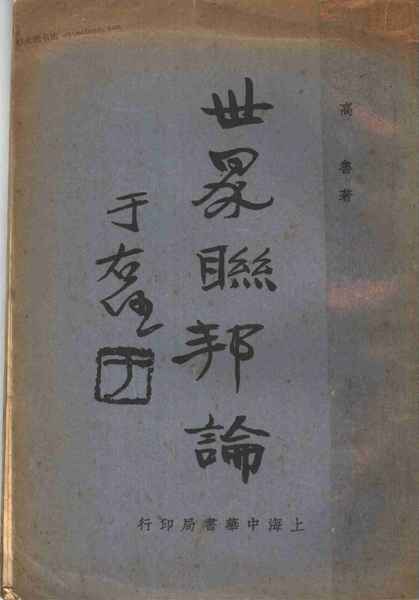 高魯著
世界聯邦論
于右任
于
上海中華書局印行